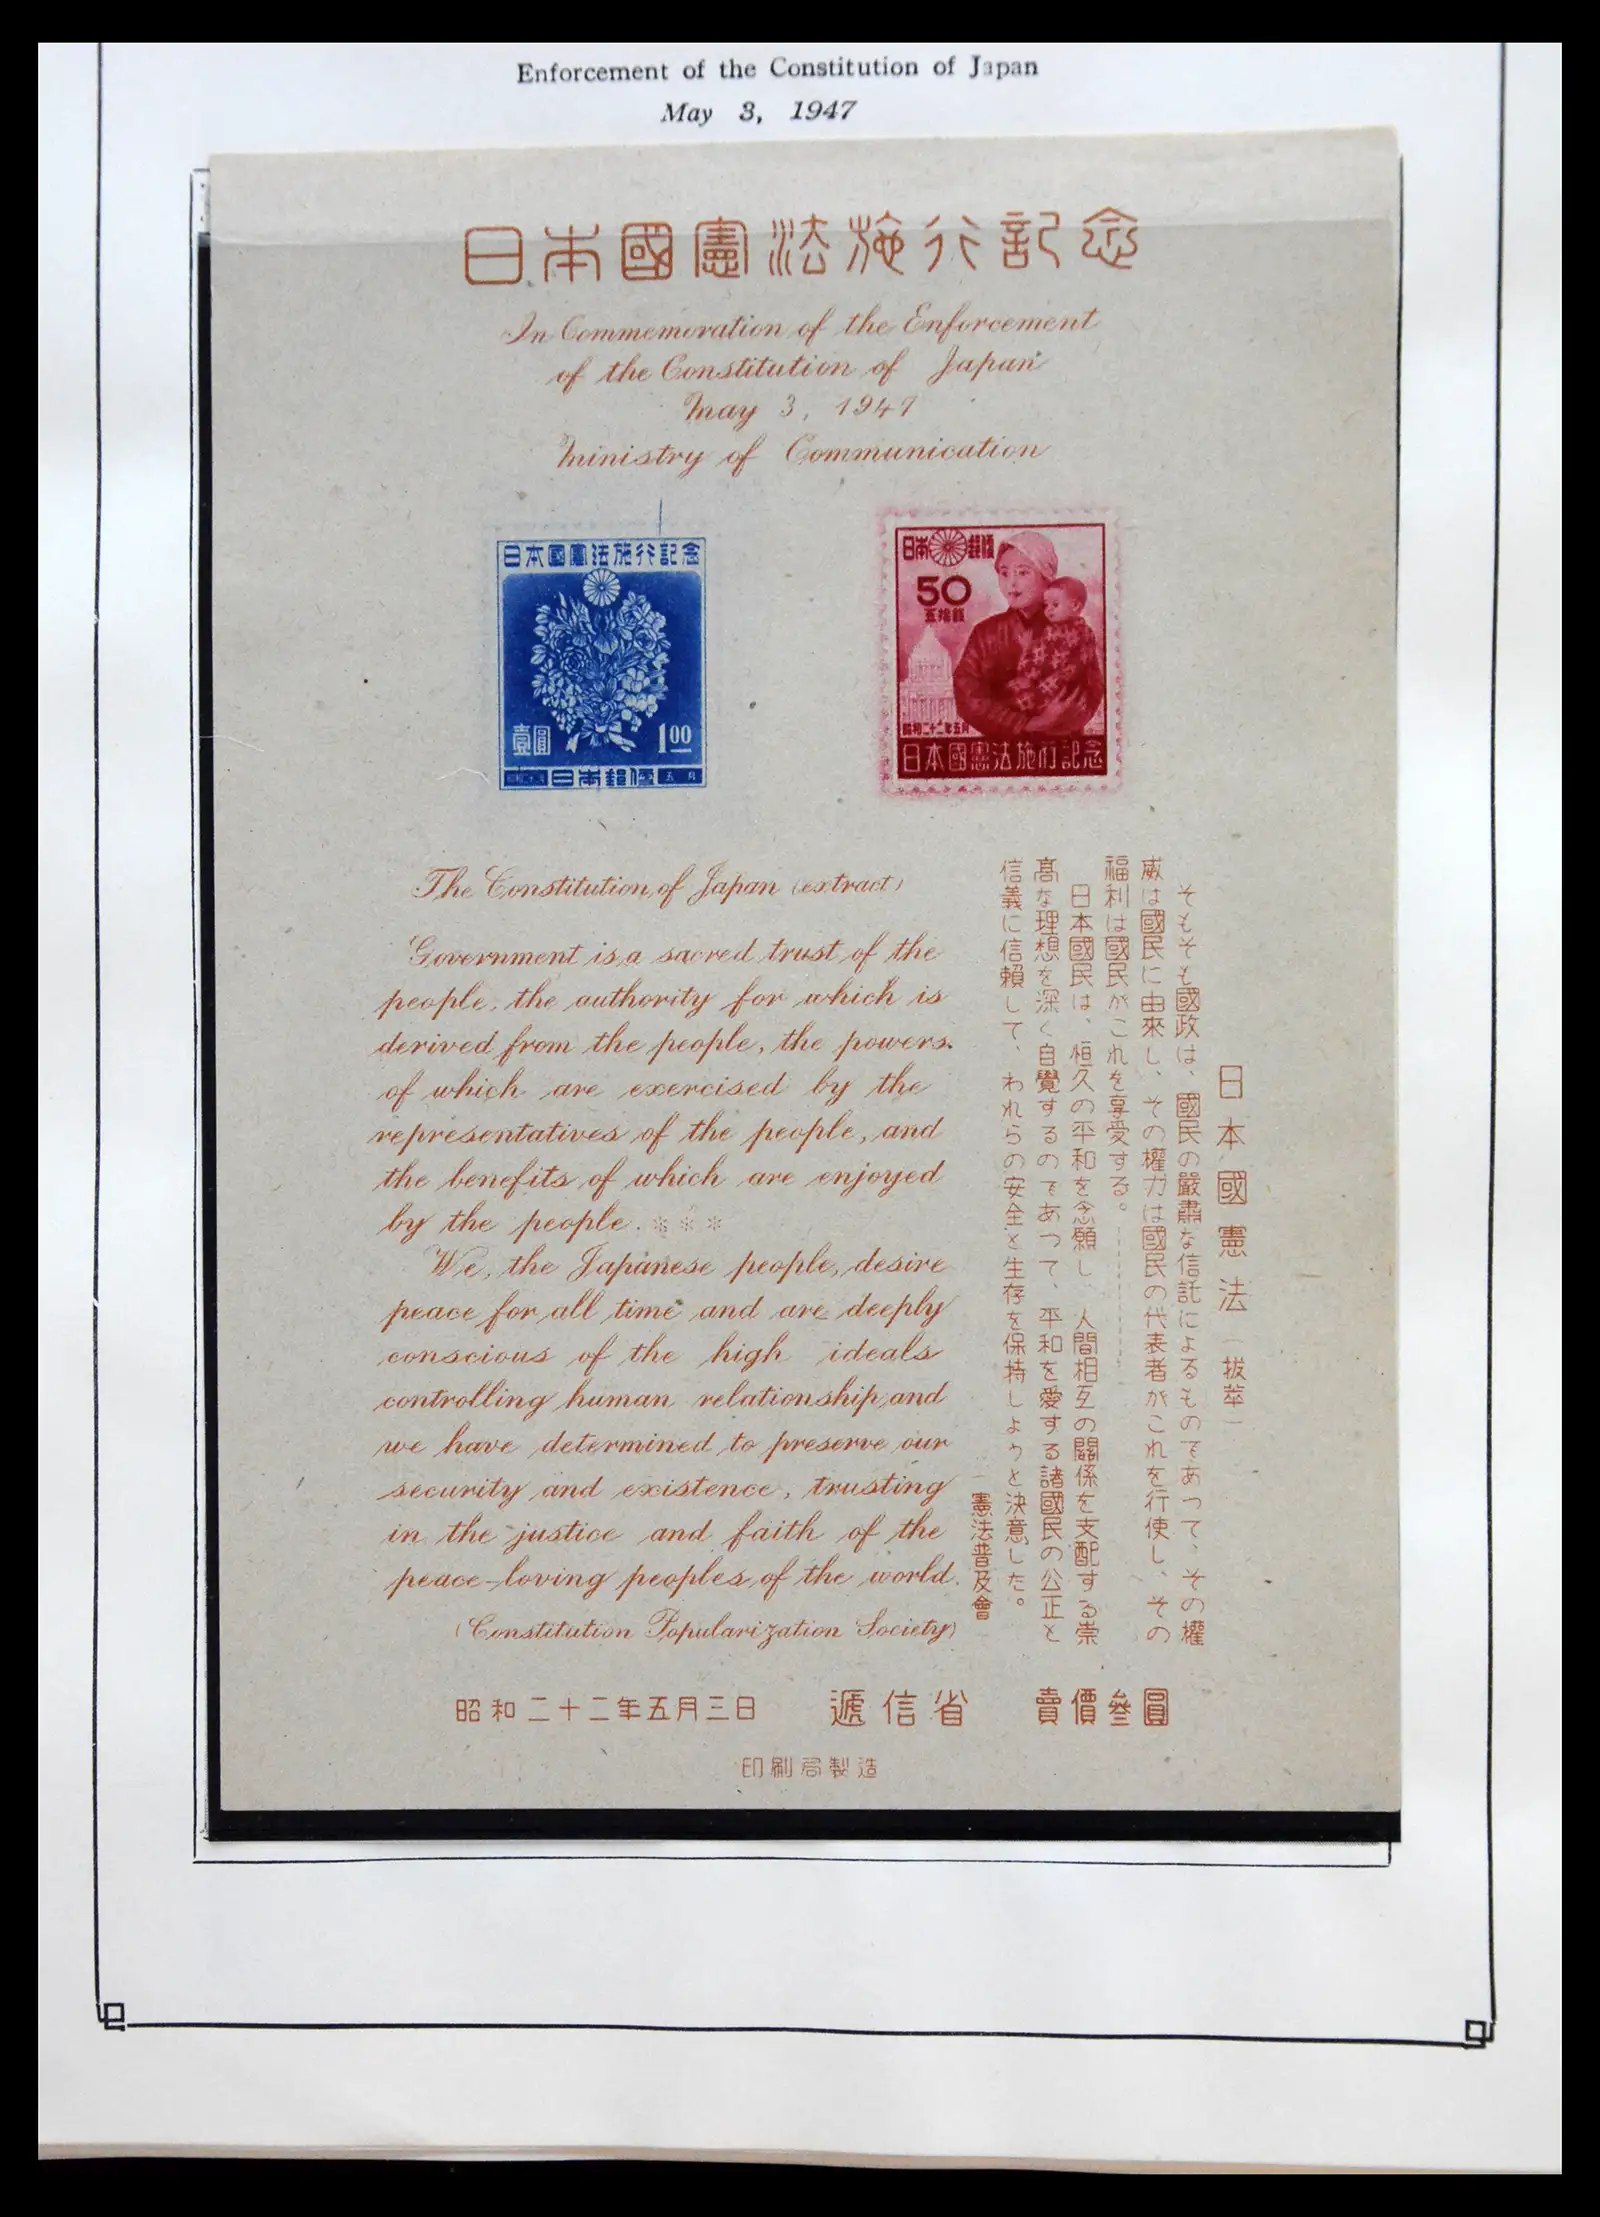 Enforcement of the Constitution of Japan
May 3, 1947
日本國憲法施行記念
In Commemoration of the Enforcement
of the Constitution of Japan
May 3, 1947
Ministry of Communication
日本國憲法施行記念
壹圓 1.00
昭和二十二年 日本郵便 五月
日本郵便
50
五拾錢
昭和二十二年五月
日本國憲法施行記念
The Constitution of Japan (extract)
Government is a sacred trust of the
people, the authority for which is
derived from the people, the powers
of which are exercised by the
representatives of the people, and
the benefits of which are enjoyed
by the people. ***
We, the Japanese people, desire
peace for all time and are deeply
conscious of the high ideals
controlling human relationship, and
we have determined to preserve our
security and existence, trusting
in the justice and faith of the
peace-loving peoples of the world.
(Constitution Popularization Society)
日本國憲法（拔萃）
そもそも國政は、國民の嚴肅な信託によるものであつて、その權
威は國民に由來し、その權力は國民の代表者がこれを行使し、その
福利は國民がこれを享受する。………
日本國民は、恒久の平和を念願し、人間相互の關係を支配する崇
高な理想を深く自覺するのであつて、平和を愛する諸國民の公正と
信義に信賴して、われらの安全と生存を保持しようと決意した。
憲法普及會
昭和二十二年五月三日 遞信省 賣價參圓
印刷局製造